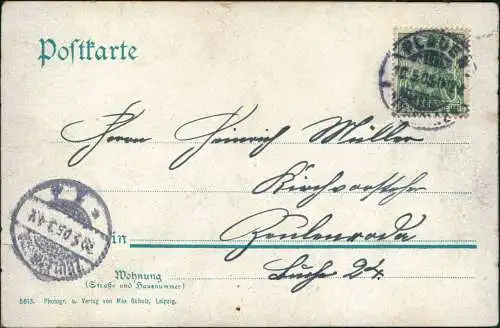 Postkarte
PLAUEN
Herrn Heinrich Müller
Kirchvorsteher
in
Zeulenroda
Wohnung
(Straße und Hausnummer)
5613. Photogr. u. Verlag von Max Scholz, Leipzig.